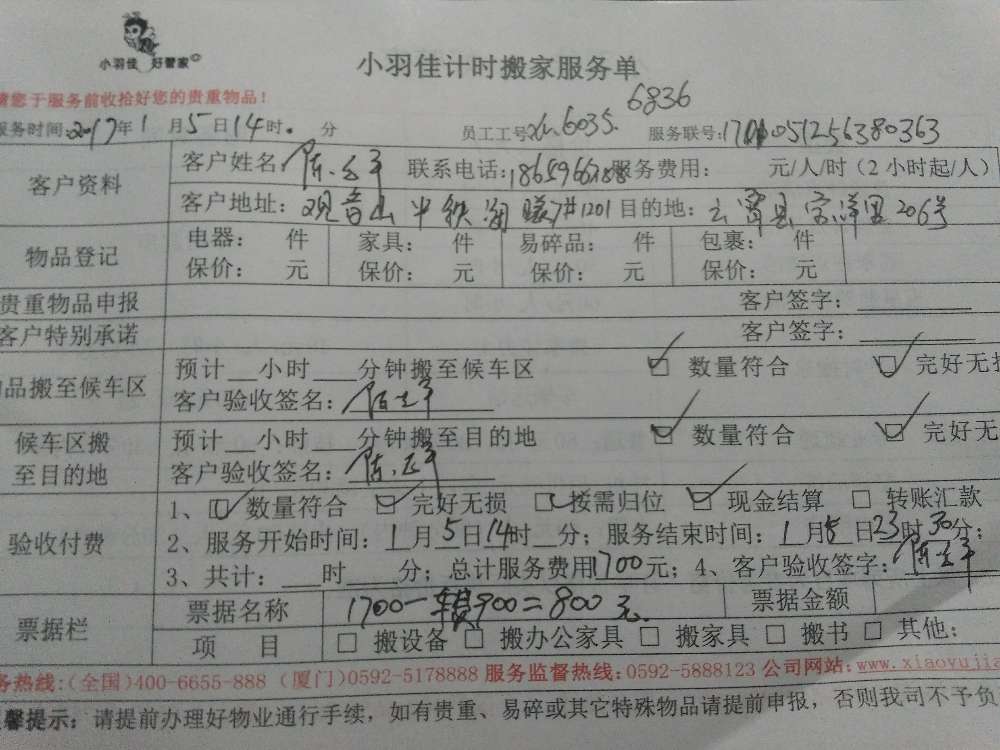 小羽佳 好管家
小羽佳计时搬家服务单
请您于服务前收拾好您的贵重物品!
6836
服务时间:2017年1月5日14时 分 员工工号 6035 服务联号:
客户资料 客户姓名: 联系电话: 服务费用: 元/人/时(2小时起/人)
客户地址:观音山 1201 目的地:云霄县 里206号
物品登记 电器: 件 家具: 件 易碎品: 件 包裹: 件
保价: 元 保价: 元 保价: 元 保价: 元
贵重物品申报 客户签字:
客户特别承诺 客户签字:
物品搬至候车区 预计__小时___分钟搬至候车区 ☑ 数量符合 ☑ 完好无损
客户验收签名:
候车区搬至目的地 预计__小时___分钟搬至目的地 ☑ 数量符合 ☑ 完好无
客户验收签名:
验收付费 1、☑数量符合 ☑完好无损 ☑按需归位 ☑现金结算 □转账汇款
2、服务开始时间:1月5日14时__分;服务结束时间:1月5日23时30分;
3、共计:___时____分;总计服务费用1700元;4、客户验收签字:
票据栏 票据名称 1700-900=800元 票据金额
项 目 □ 搬设备 □ 搬办公家具 □ 搬家具 □ 搬书 □ 其他:
务热线:(全国)400-6655-888 (厦门)0592-5178888 服务监督热线:0592-5888123 公司网站:www.xiaoyujia
温馨提示:请提前办理好物业通行手续,如有贵重、易碎或其它特殊物品请提前申报,否则我司不予负